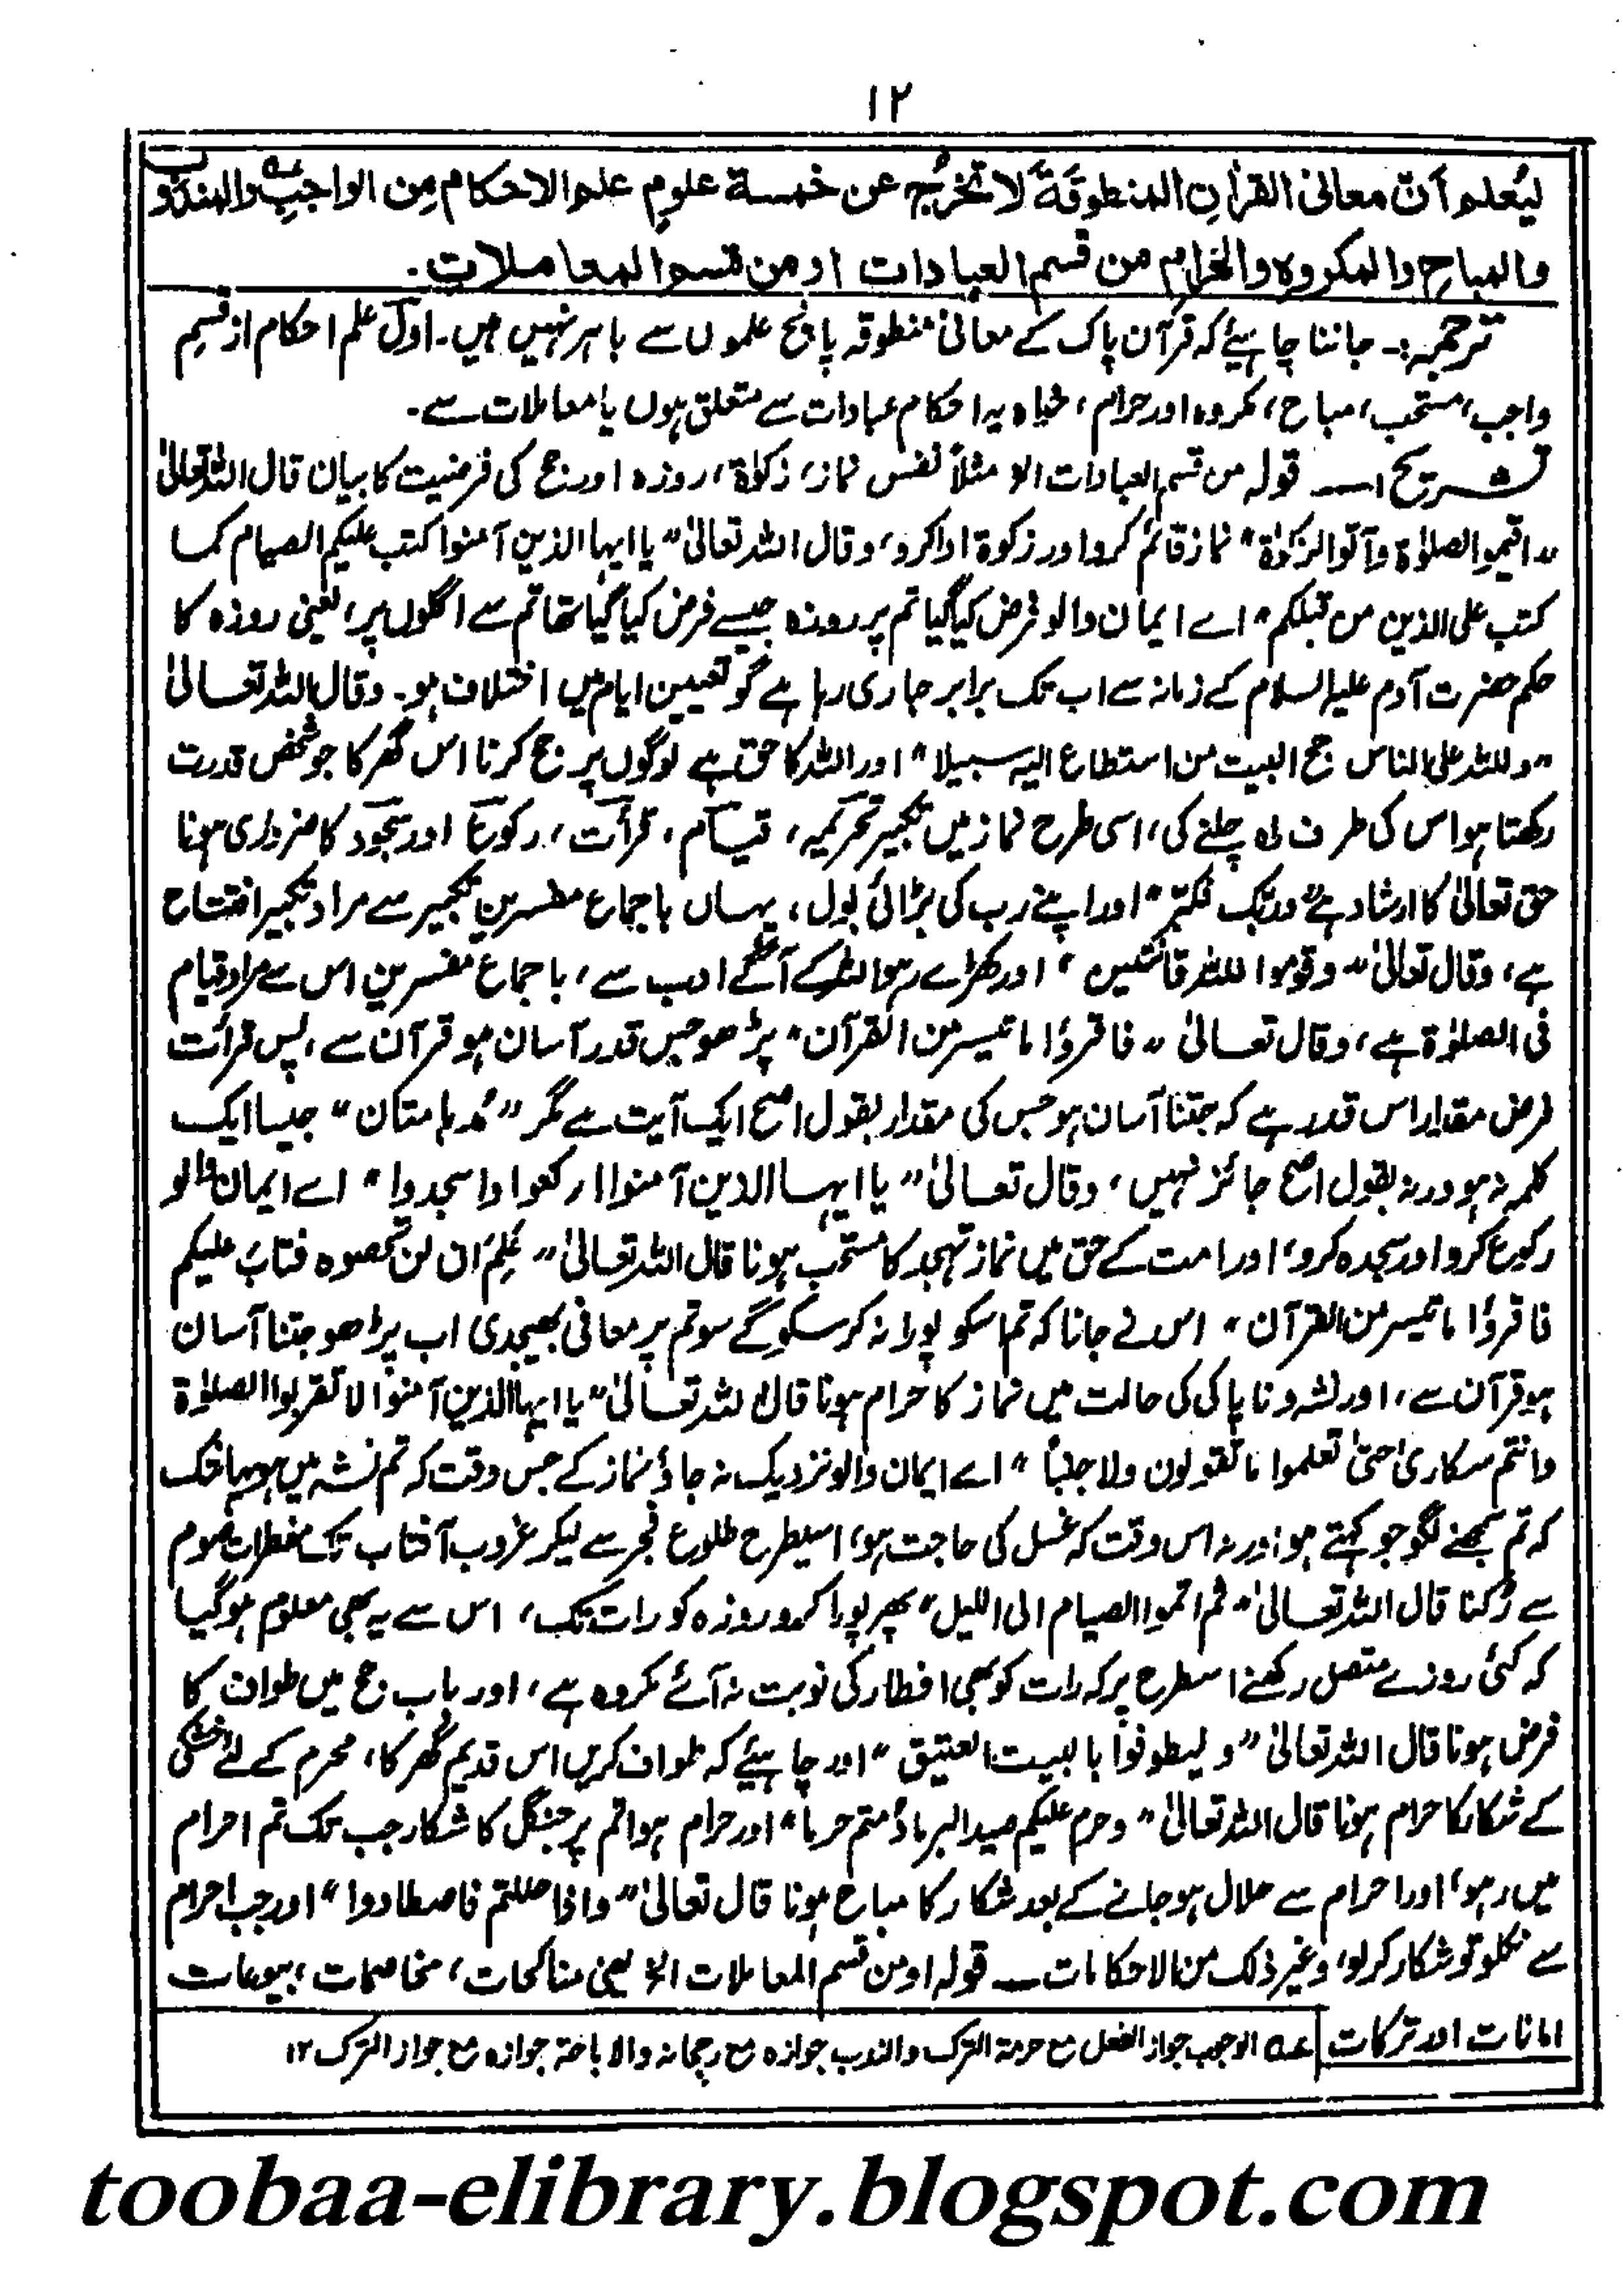 ۱۲
لیُعلم اَنّ معانیَ القرأنِ المنطوقۃَ لا تخرُج عن خمسۃ علومٍ علم الاحکام مِن الواجبِ والمندوب
والمباحِ والمکروہِ والحرامِ من قسم العبادات او من قسم المعاملات۔
ترجمہ:۔ جاننا چاہیئے کہ قرآن پاک کے معانی منطوقہ پانچ علموں سے باہر نہیں ہیں۔ اوّل علم احکام از قسم
واجب، مستحب، مباح، مکروہ اور حرام، خواہ یہ احکام عبادات سے متعلق ہوں یا معاملات سے۔
تشریح اــــ قولہ من قسم العبادات الخ مثلاً نفس نماز، زکوٰۃ، روزہ اور حج کی فرضیت کا بیان قال اللہ تعالیٰ
”اقیموا الصلوٰۃ وآتوا الزکوٰۃ“ نماز قائم کرو اور زکوۃ ادا کرو، وقال اللہ تعالیٰ ”یا ایہا الذین آمنوا کتب علیکم الصیام کما
کتب علی الذین من قبلکم“ اے ایمان والو فرض کیا گیا تم پر روزہ جیسے فرض کیا گیا تھا تم سے اگلوں پر، یعنی روزہ کا
حکم حضرت آدم علیہ السلام کے زمانہ سے اب تک برابر جاری رہا ہے گو تعیین ایام میں اختلاف ہو۔ وقال اللہ تعالیٰ
”وللہ علی الناس حج البیت من استطاع الیہ سبیلا“ اور اللہ کا حق ہے لوگوں پر حج کرنا اس گھر کا جو شخص قدرت
رکھتا ہو اس کی طرف راہ چلنے کی، اسی طرح نماز میں تکبیر تحریمہ، قیام، قرأت، رکوع اور سجود کا ضروری ہونا
حق تعالیٰ کا ارشاد ہے ”وربک فکبّر“ اور اپنے رب کی بڑائی بول، یہاں باجماع مفسرین تکبیر سے مراد تکبیر افتتاح
ہے، وقال تعالیٰ ”وقوموا للہ قانتین“ اور کھڑے رہو اللہ کے آگے ادب سے، باجماع مفسرین اس سے مراد قیام
فی الصلوٰۃ ہے، وقال تعالیٰ ”فاقرؤا ما تیسر من القرآن“ پڑھو جس قدر آسان ہو قرآن سے، پس قرأت
فرض مقدار اس قدر ہے کہ جتنا آسان ہو جس کی مقدار بقول اصح ایک آیت ہے مگر ”مُدہامتان“ جیسا ایک
کلمہ نہ ہو ورنہ بقول اصح جائز نہیں، وقال تعالیٰ ”یا ایہا الذین آمنوا ارکعوا واسجدوا“ اے ایمان والو
رکوع کرو اور سجدہ کرو، اور امت کے حق میں نماز تہجد کا مستحب ہونا قال اللہ تعالیٰ ”عَلِمَ ان لن تحصوہ فتابَ علیکم
فاقرؤا ما تیسر من القرآن“ اس نے جانا کہ تم اسکو پورا نہ کر سکو گے سو تم پر معافی بھیجدی اب پڑھو جتنا آسان
ہو قرآن سے، اور نشہ و ناپاکی کی حالت میں نماز کا حرام ہونا قال اللہ تعالیٰ ”یا ایہا الذین آمنوا لا تقربوا الصلوٰۃ
وانتم سکاریٰ حتیٰ تعلموا ما تقولون ولا جنباً“ اے ایمان والو نزدیک نہ جاؤ نماز کے جس وقت کہ تم نشہ میں ہو یہانتک
کہ تم سمجھنے لگو جو کہتے ہو اور نہ اس وقت کہ غسل کی حاجت ہو، اسیطرح طلوع فجر سے لیکر غروب آفتاب تک مفطرات صوم
سے رُکنا قال اللہ تعالیٰ ”ثم اتموا الصیام الی اللیل“ پھر پورا کرو روزہ کو رات تک، اس سے یہ بھی معلوم ہو گیا
کہ کئی روزے متصل رکھنے اسطرح پر کہ رات کو بھی افطار کی نوبت نہ آئے مکروہ ہے، اور باب حج میں طواف کا
فرض ہونا قال اللہ تعالیٰ ”ولیطوفوا بالبیت العتیق“ اور چاہیئے کہ طواف کریں اس قدیم گھر کا، محرم کے لئے خشکی
کے شکار کا حرام ہونا قال اللہ تعالیٰ ”وحرم علیکم صید البر مادُمتم حرما“ اور حرام ہوا تم پر جنگل کا شکار جب تک تم احرام
میں رہو، اور احرام سے حلال ہو جانے کے بعد شکار کا مباح ہونا قال تعالیٰ ”واذا حللتم فاصطادوا“ اور جب احرام
سے نکلو تو شکار کر لو، وغیر ذلک من الاحکامات ــــ قولہ او من قسم المعاملات الخ یعنی مناکحات، مخاصمات، بیوعات
امانات اور ترکات
عہ الوجوب جواز الفعل مع حرمۃ الترک والندب جوازہ مع رجحانہ والاباحۃ جوازہ مع جواز الترک ۱۲
toobaa-elibrary.blogspot.com